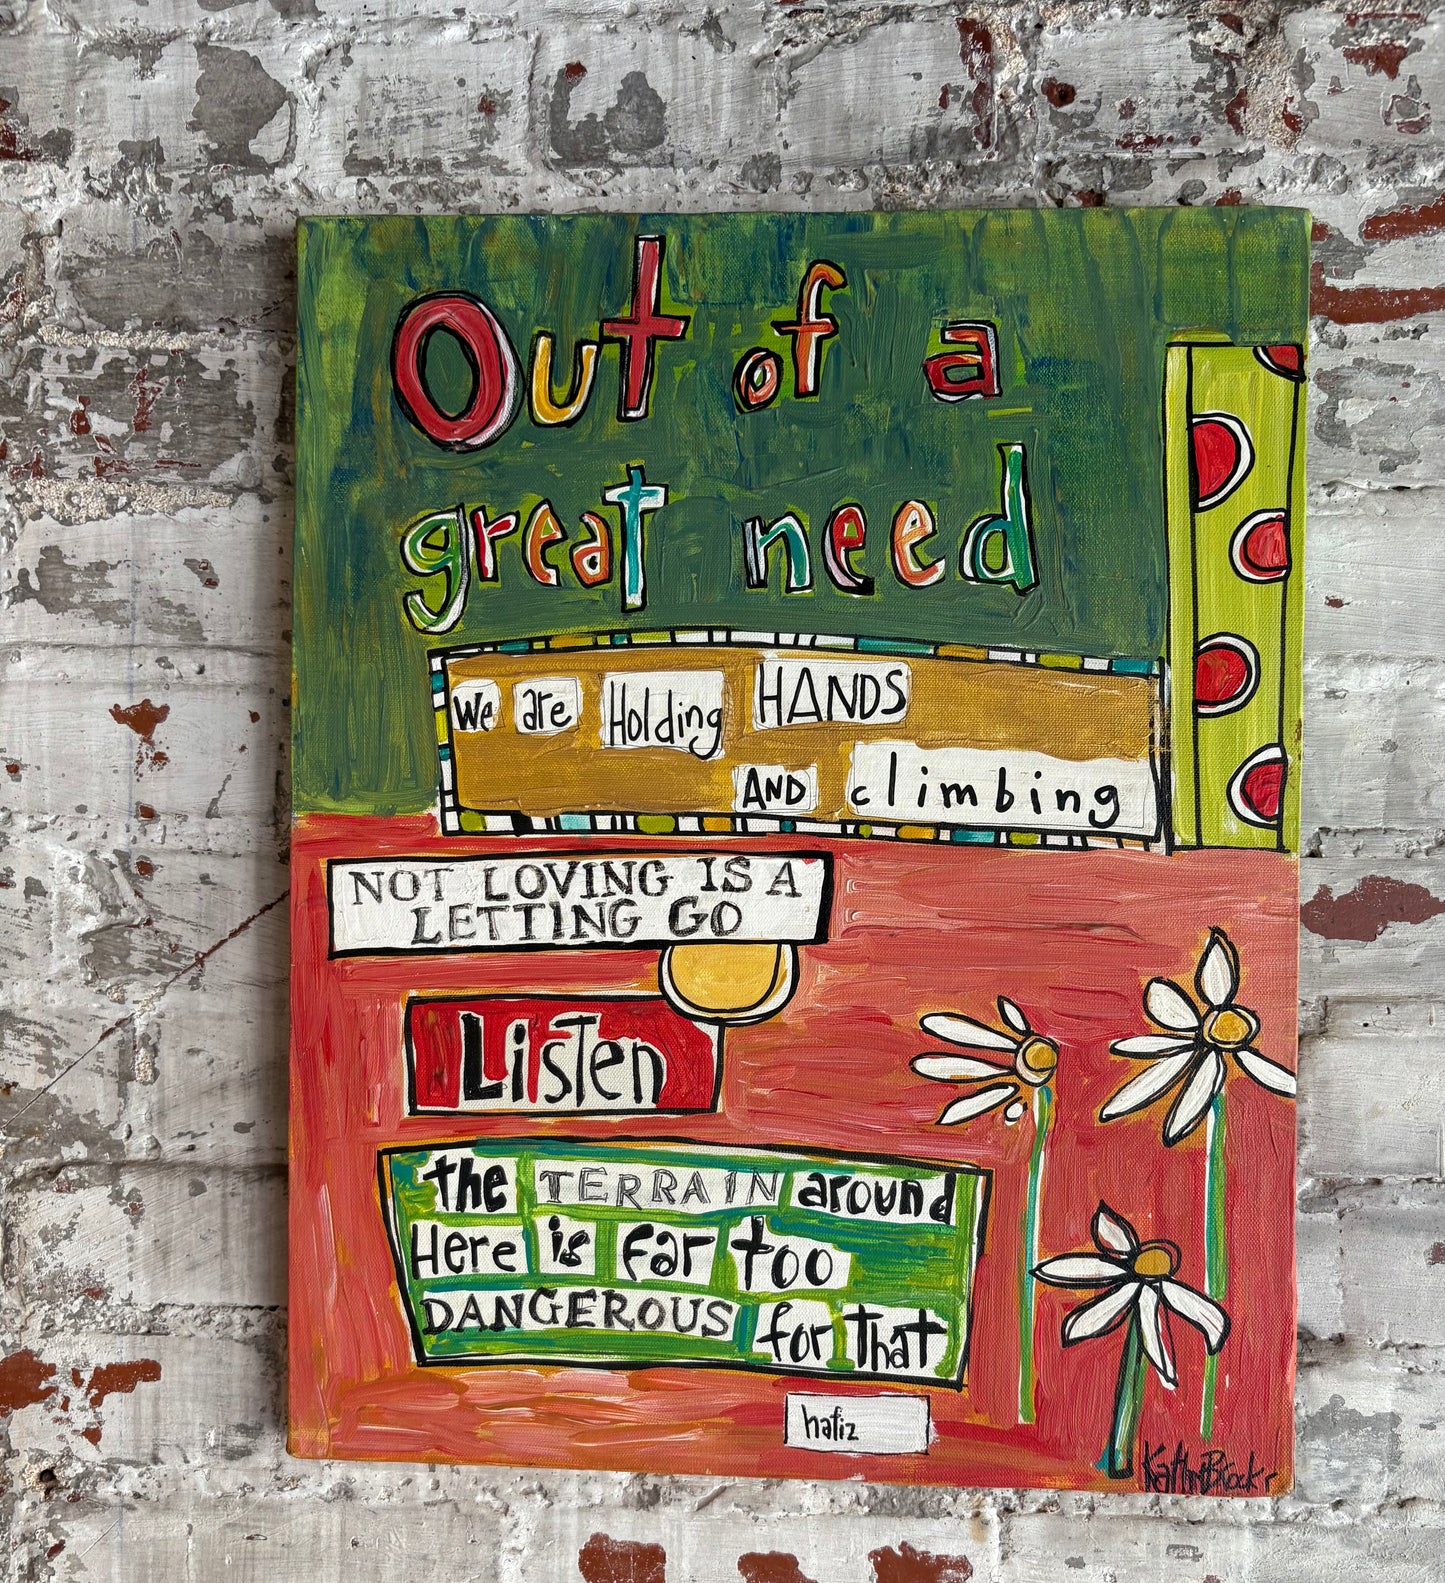 Out of a
great need
We are Holding HANDS
AND climbing
NOT LOVING IS A
LETTING GO
Listen
the TERRAIN around
Here is far too
DANGEROUS for that
hafiz